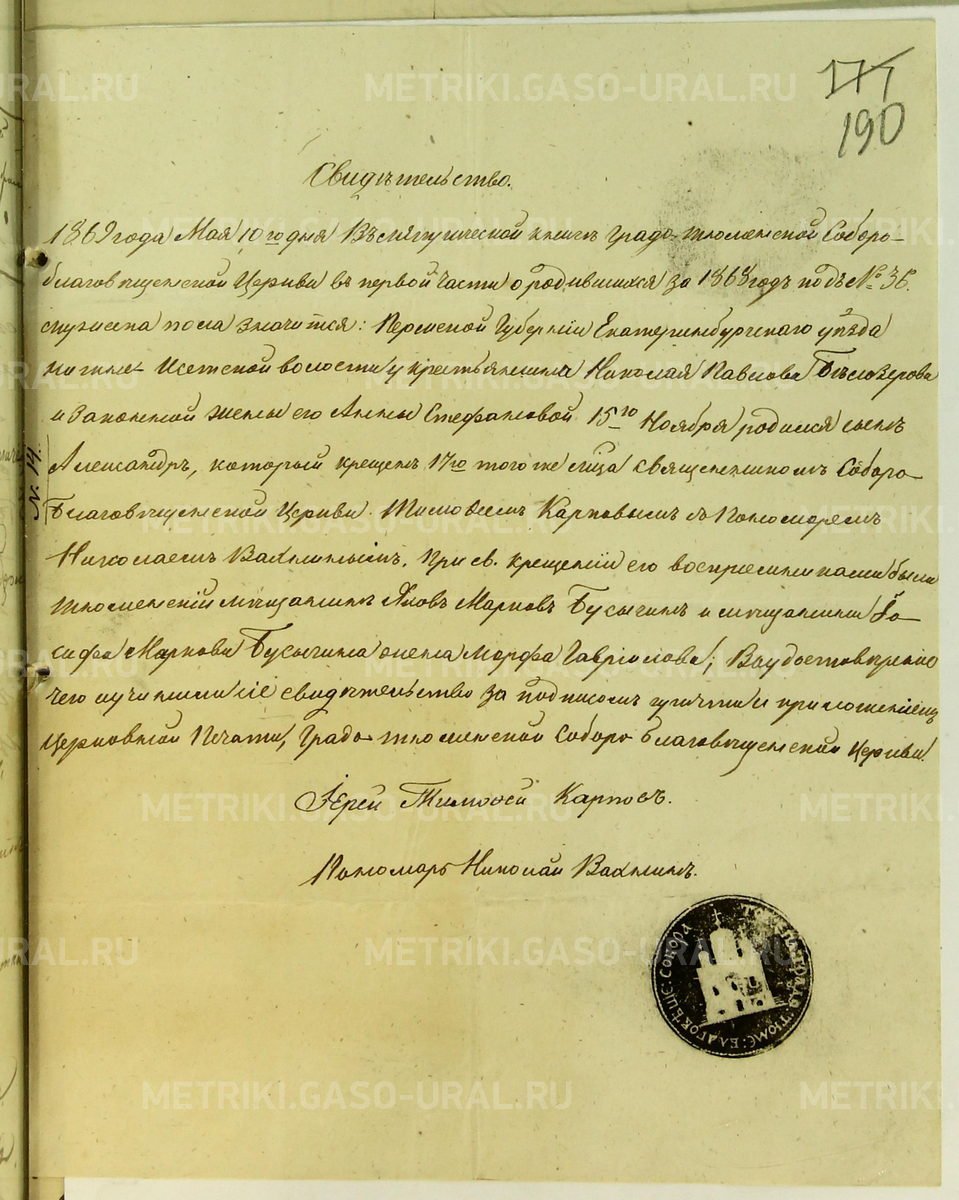 177
190
Свидѣтельство.
1869 года Мая 10го дня Въ метрической книгѣ градо-тюменской Соборо-
благовѣщенской Церкви въ первой части о родившихся за 1868 годъ подъ № 36.
мужеска пола значится: Пермской Губерніи Екатеринбургскаго уѣзда
Нижне-Исетской волости у крестьянина Николая Павлова Бѣлозерова
и Законной жены его Анны Стефановой 15го Ноября родился сынъ
Александръ, который крещенъ 17го того же мѣца священникомъ Соборо-
Благовѣщенской Церкви Тимофеемъ Карповымъ съ Пономаремъ
Николаемъ Вахминымъ. При св. крещеніи его воспріемниками были
тюменскій мѣщанинъ Яковъ Марковъ Бусыгинъ и мѣщанина Іо-
сифа Маркова Бусыгина жена Марфа Гаврилова; Въ удостовѣреніе
чего учинили сіе свидѣтельство за подписомъ причта и приложеніемъ
Церковной Печати, Градо-тюменской Соборо благовѣщенской Церкви.
Іерей Тимофей Карповъ.
Пономарь Николай Вахминъ.
№ 14.
БЛАГОВѢЩЕ: СОБОРА
METRIKI.GASO-URAL.RU